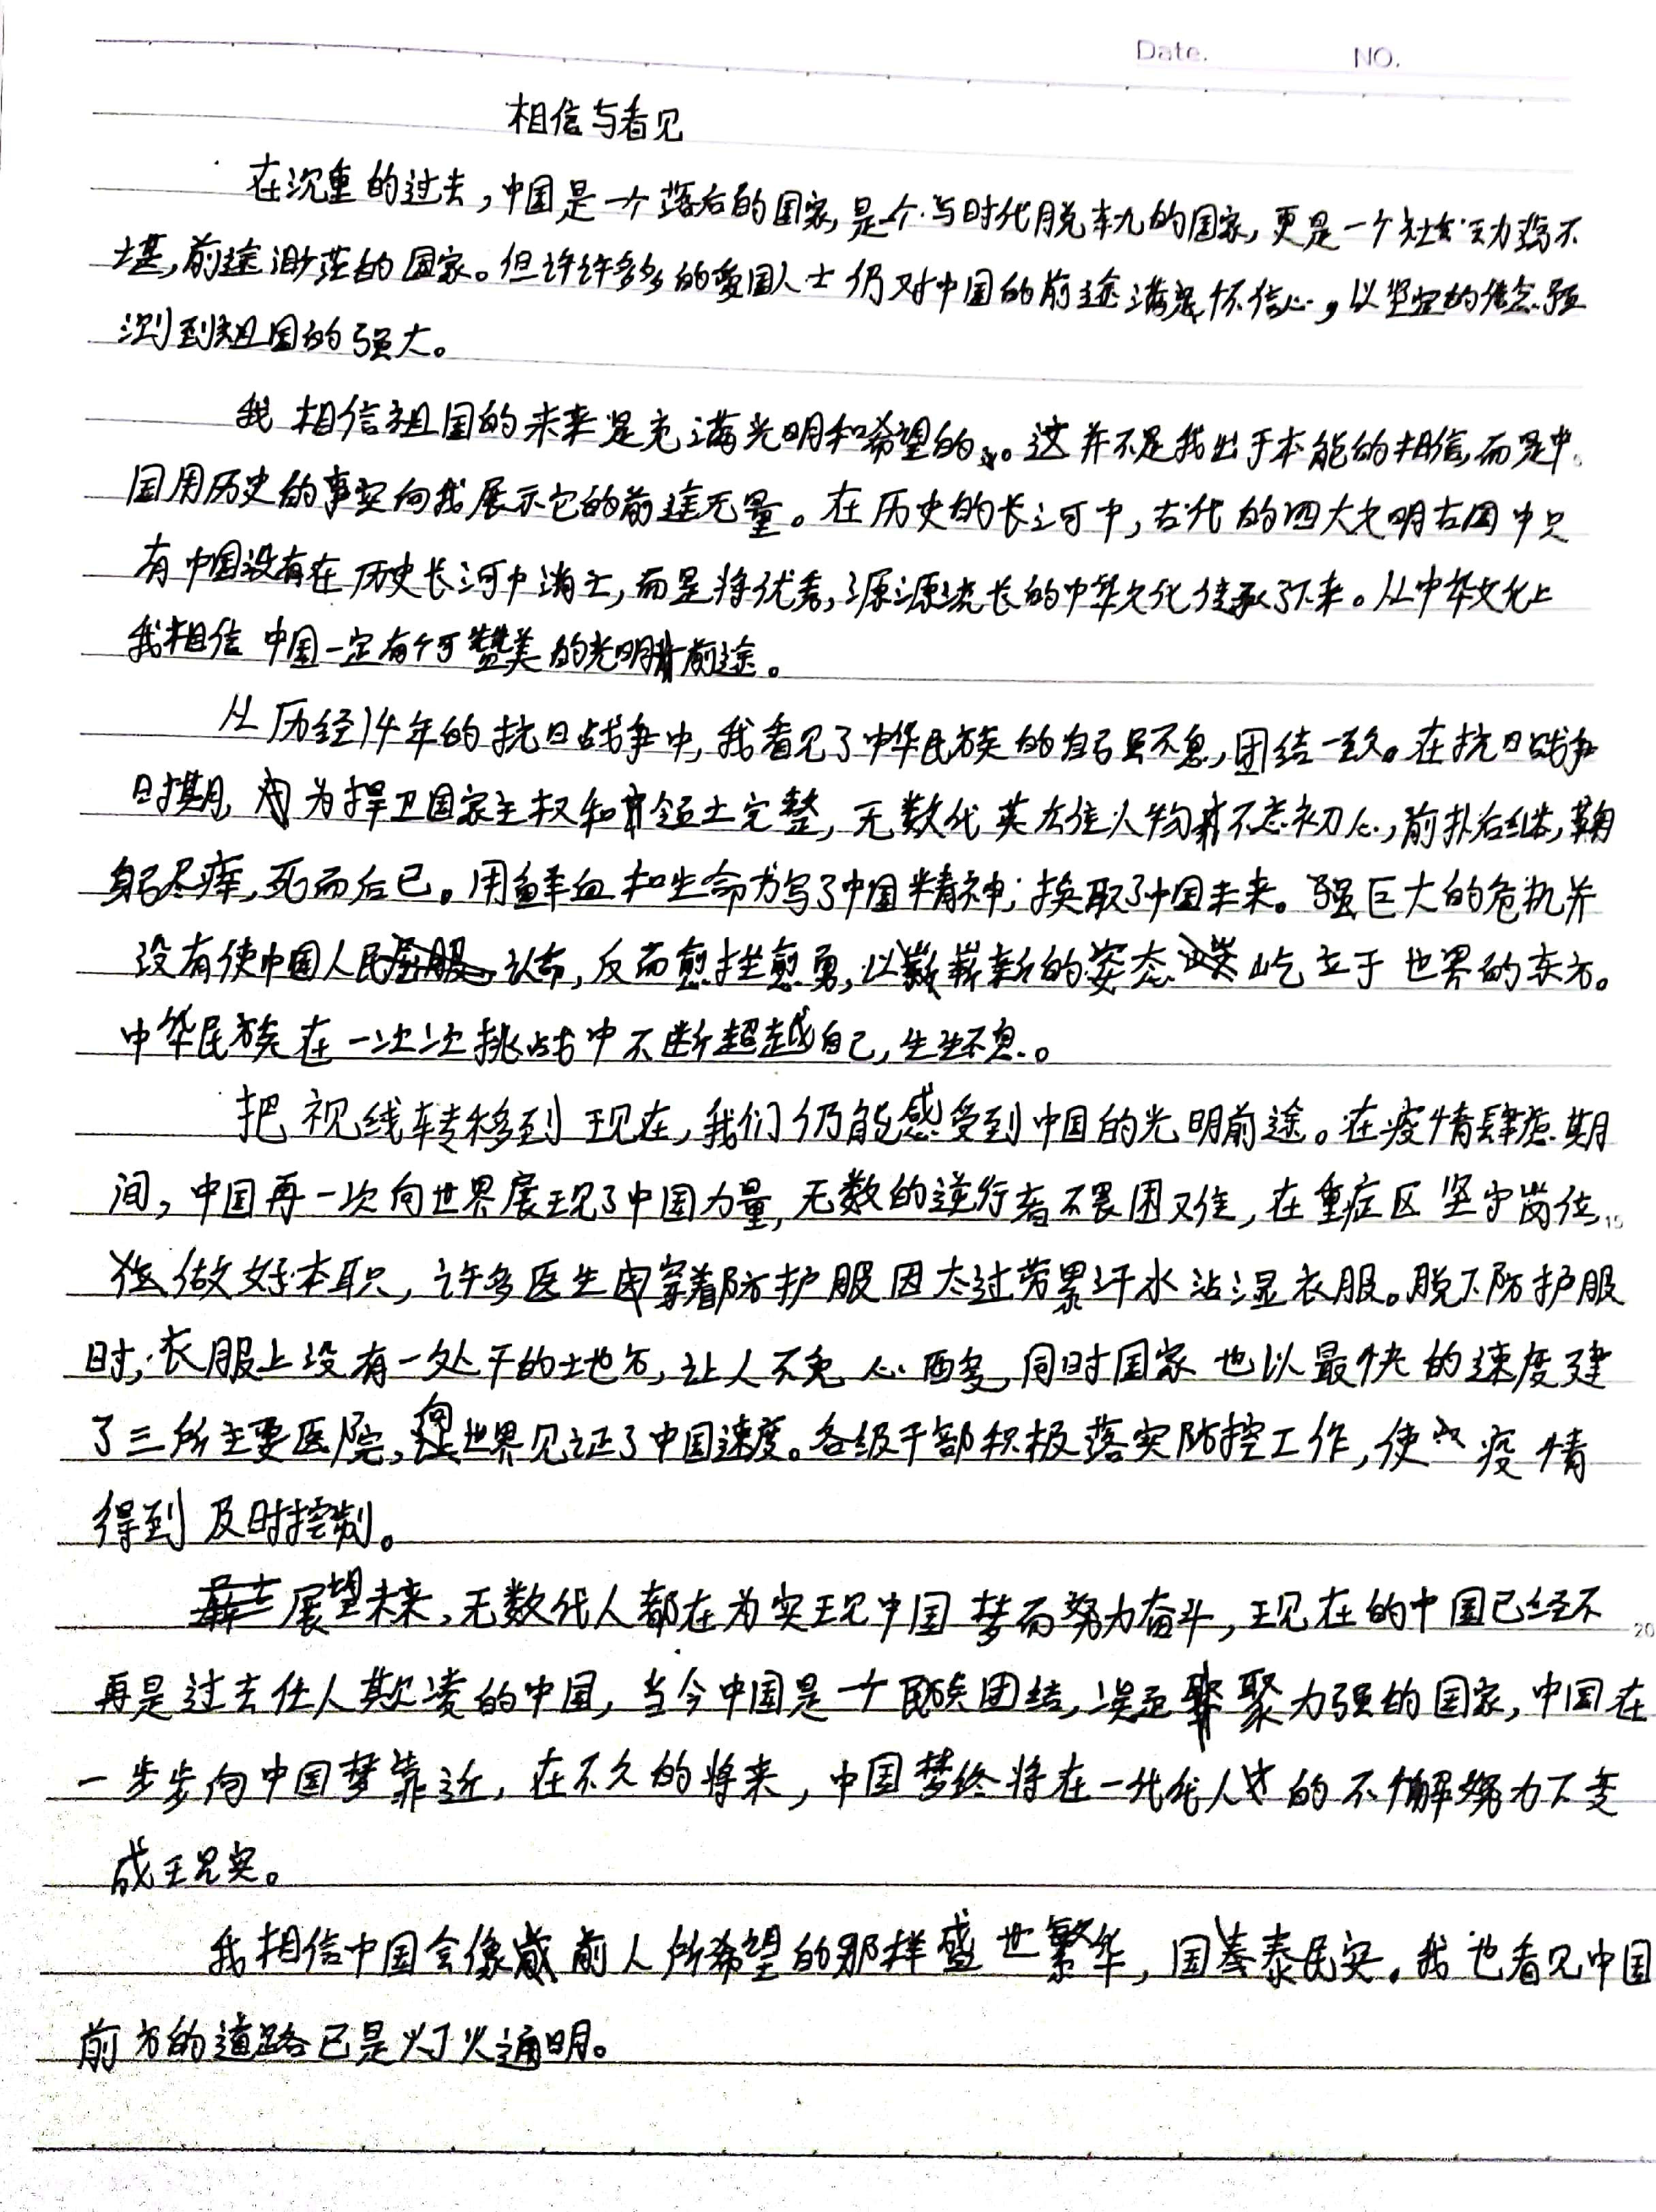 Date. NO.
相信与看见
在沉重的过去,中国是一个落后的国家,是个与时代脱轨的国家,更是一个社会动荡不
堪,前途渺茫的国家。但许许多多的爱国人士仍对中国的前途满怀信心,以坚定的信念预
测到祖国的强大。
我相信祖国的未来是充满光明和希望的。这并不是我出于本能的相信,而是中
国用历史的事实向我展示它的前途无量。在历史的长河中,古代的四大文明古国中只
有中国没有在历史长河中消亡,而是将优秀,源源流长的中华文化传承了下来。从中华文化上
我相信中国一定有个可赞美的光明前途。
从历经14年的抗日战争中,我看见了中华民族的自强不息,团结一致。在抗日战争
时期,为捍卫国家主权和领土完整,无数代英雄人物不忘初心,前扑后继,鞠
躬尽瘁,死而后已。用鲜血和生命书写了中国精神;换取了中国未来。巨大的危机并
没有使中国人民认命,反而愈挫愈勇,以崭新的姿态屹立于世界的东方。
中华民族在一次次挑战中不断超越自己,生生不息。
把视线转移到现在,我们仍能感受到中国的光明前途。在疫情肆虐期
间,中国再一次向世界展现了中国力量,无数的逆行者不畏困难,在重症区坚守岗位,
做好本职,许多医生穿着防护服因太过劳累汗水沾湿衣服。脱下防护服
时,衣服上没有一处干的地方,让人不免心酸,同时国家也以最快的速度建
了三所主要医院,向世界见证了中国速度。各级干部积极落实防控工作,使疫情
得到及时控制。
展望未来,无数代人都在为实现中国梦而努力奋斗,现在的中国已经不
再是过去任人欺凌的中国,当今中国是一个民族团结,聚力强的国家,中国在
一步步向中国梦靠近,在不久的将来,中国梦终将在一代代人的不懈努力下变
成现实。
我相信中国会像前人所希望的那样盛世繁华,国泰民安。我也看见中国
前方的道路已是灯火通明。